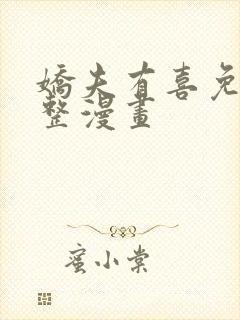 嬌夫有喜免
整漫畫
蜜小棠